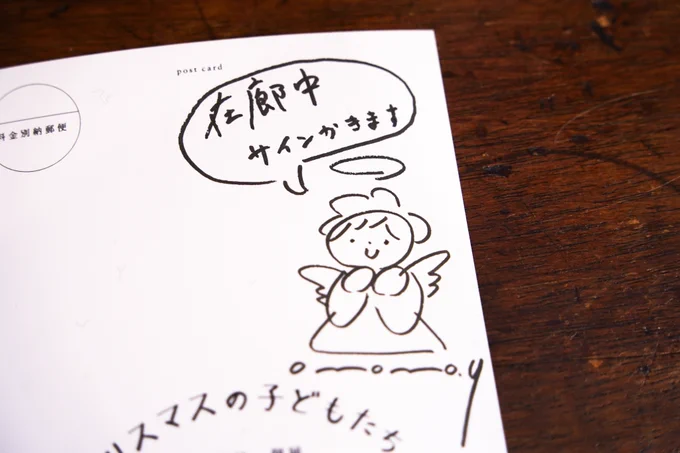 post card
料金別納郵便
在廊中
サインかきます
.y
リスマスの子どもたち